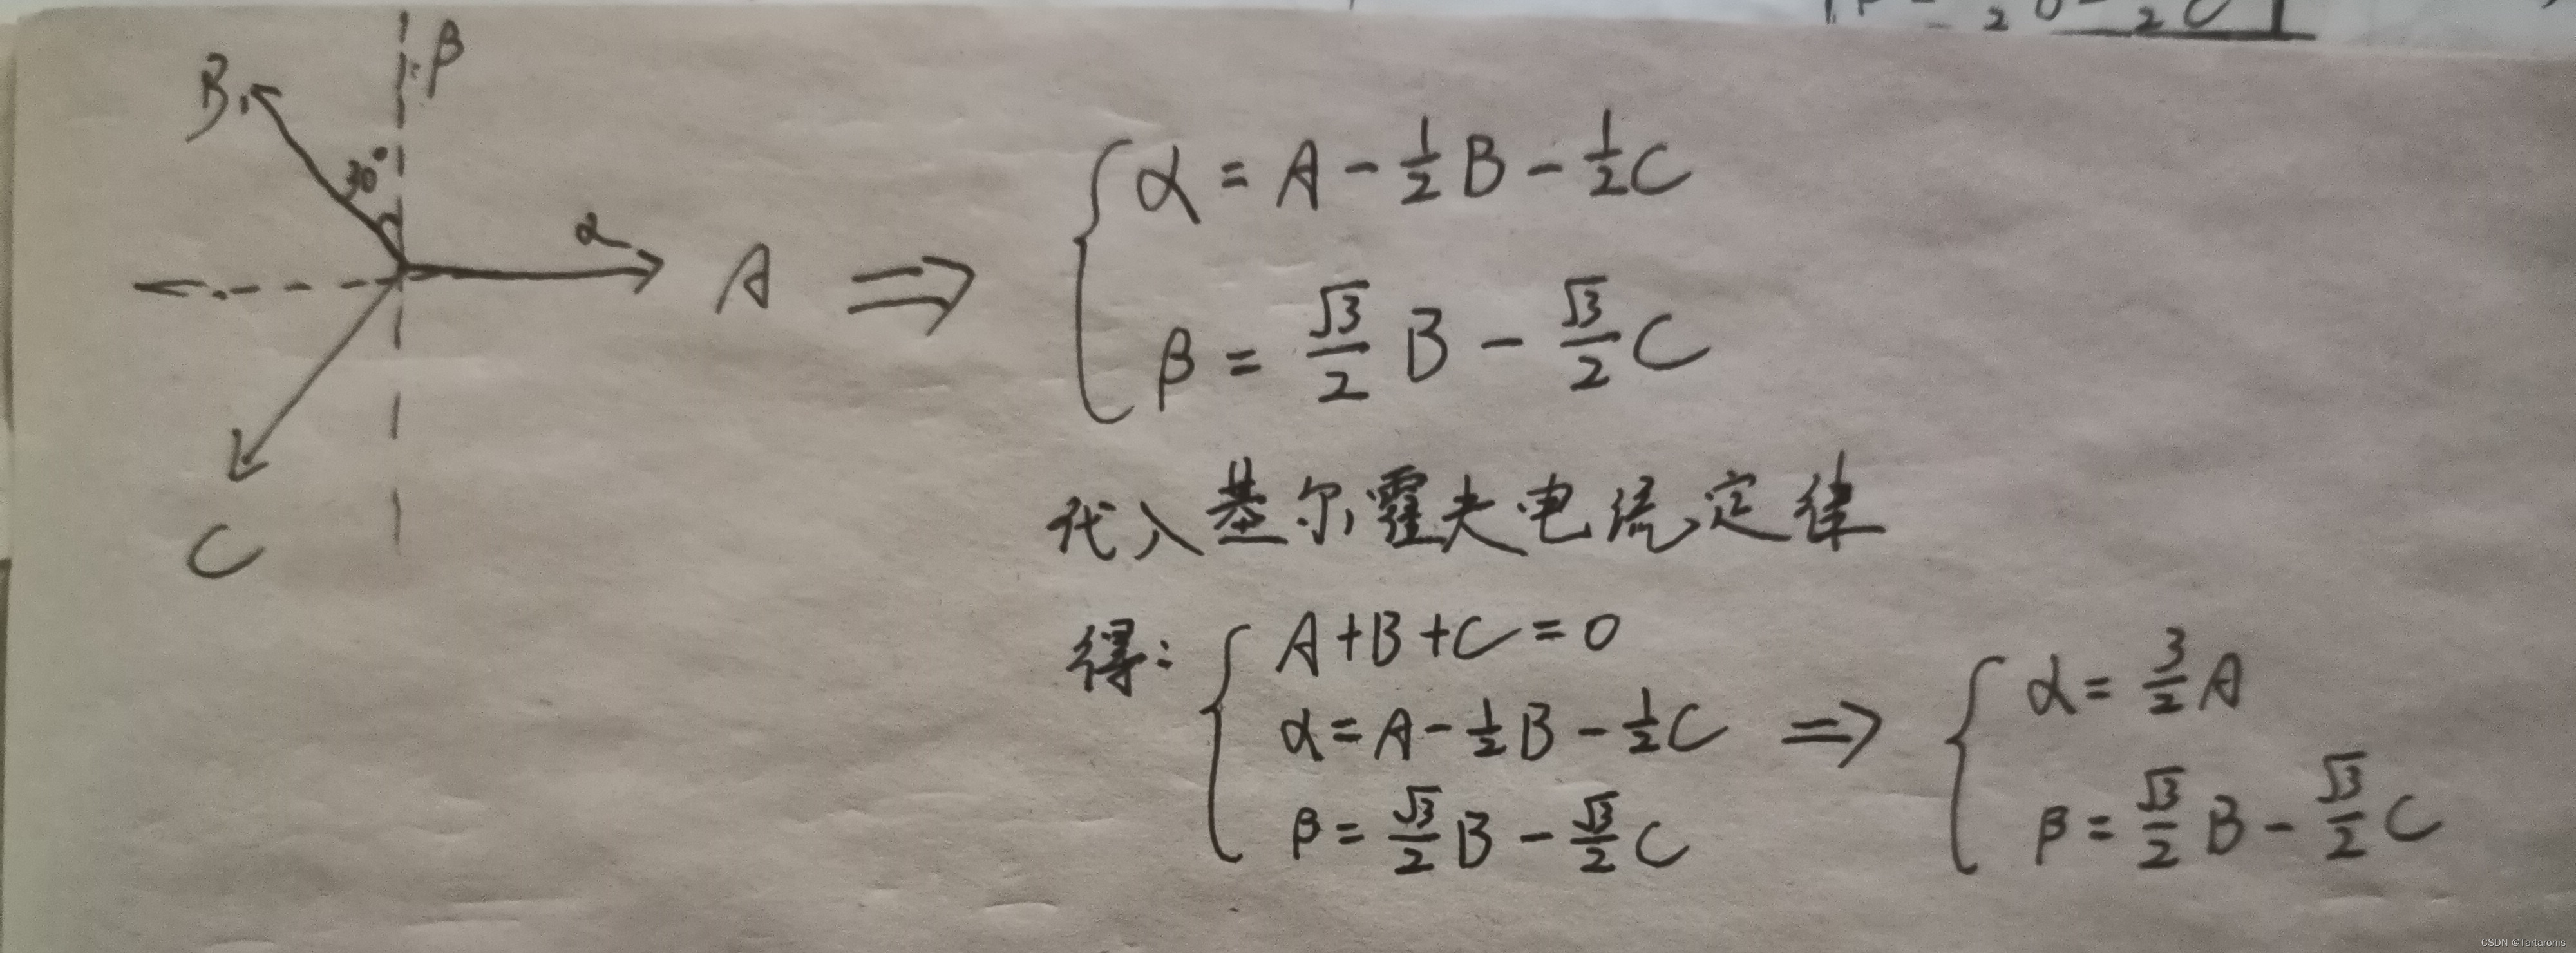 β
B
30°
α
A ⇒
C
α = A - 1/2 B - 1/2 C
β = √3/2 B - √3/2 C
代入基尔霍夫电流定律
得: A+B+C=0
α = A - 1/2 B - 1/2 C ⇒ α = 3/2 A
β = √3/2 B - √3/2 C β = √3/2 B - √3/2 C
CSDN @Tartaronis